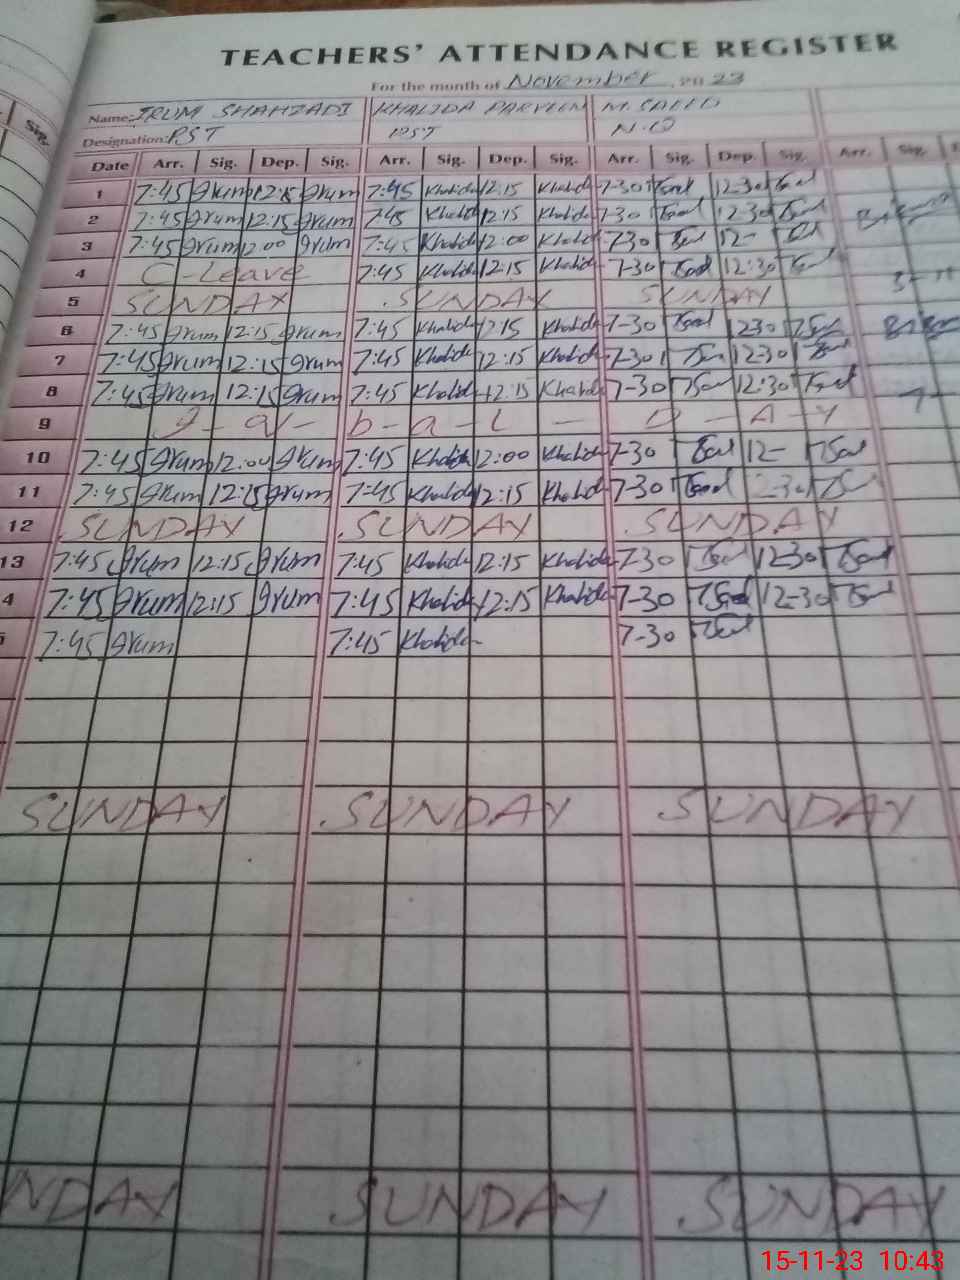 TEACHERS' ATTENDANCE REGISTER
For the month of November, 2023
Name: IRUM SHAHZADI KHALIDA PARVEEN M. SAEED
Designation: PST PST N.Q
Date Arr. Sig. Dep. Sig. Arr. Sig. Dep. Sig. Arr. Sig. Dep. Sig. Arr. Sig.
1 7:45 Irum 12:15 Irum 7:45 Khalida 12:15 Khalida 7-30 12-30
2 7:45 Irum 12:15 Irum 7:45 Khalida 12:15 Khalida 7-30 12-30
3 7:45 Irum 12:00 Irum 7:45 Khalida 12:00 Khalida 7-30 12-
4 C-Leave 7:45 Khalida 12:15 Khalida 7-30 12:30
5 SUNDAY SUNDAY SUNDAY
6 7:45 Irum 12:15 Irum 7:45 Khalida 12:15 Khalida 7-30 12-30
7 7:45 Irum 12:15 Irum 7:45 Khalida 12:15 Khalida 7-30 12-30
8 7:45 Irum 12:15 Irum 7:45 Khalida 12:15 Khalida 7-30 12:30
9 I-q-b-a-l - D-A-Y
10 7:45 Irum 12:00 Irum 7:45 Khalida 12:00 Khalida 7-30 12-
11 7:45 Irum 12:15 Irum 7:45 Khalida 12:15 Khalida 7-30 12-30
12 SUNDAY SUNDAY SUNDAY
13 7:45 Irum 12:15 Irum 7:45 Khalida 12:15 Khalida 7-30 12-30
4 7:45 Irum 12:15 Irum 7:45 Khalida 12:15 Khalida 7-30 12-30
7:45 Irum 7:45 Khalida 7-30
SUNDAY SUNDAY SUNDAY
NDAY SUNDAY SUNDAY
15-11-23 10:43